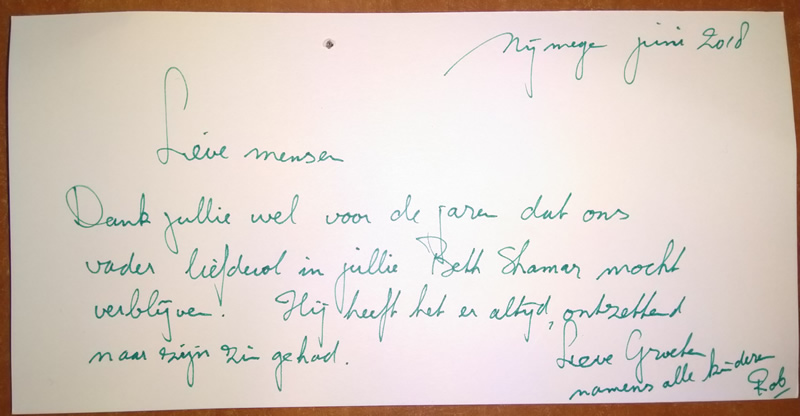 Nijmege juni 2018
Lieve mensen
Dank jullie wel voor de jaren dat ons
vader liefdevol in jullie Beth Shamar mocht
verblijven. Hij heeft het er altijd, ontzettend
naar zijn zin gehad.
Lieve Groeten
namens alle kinderen
Rob